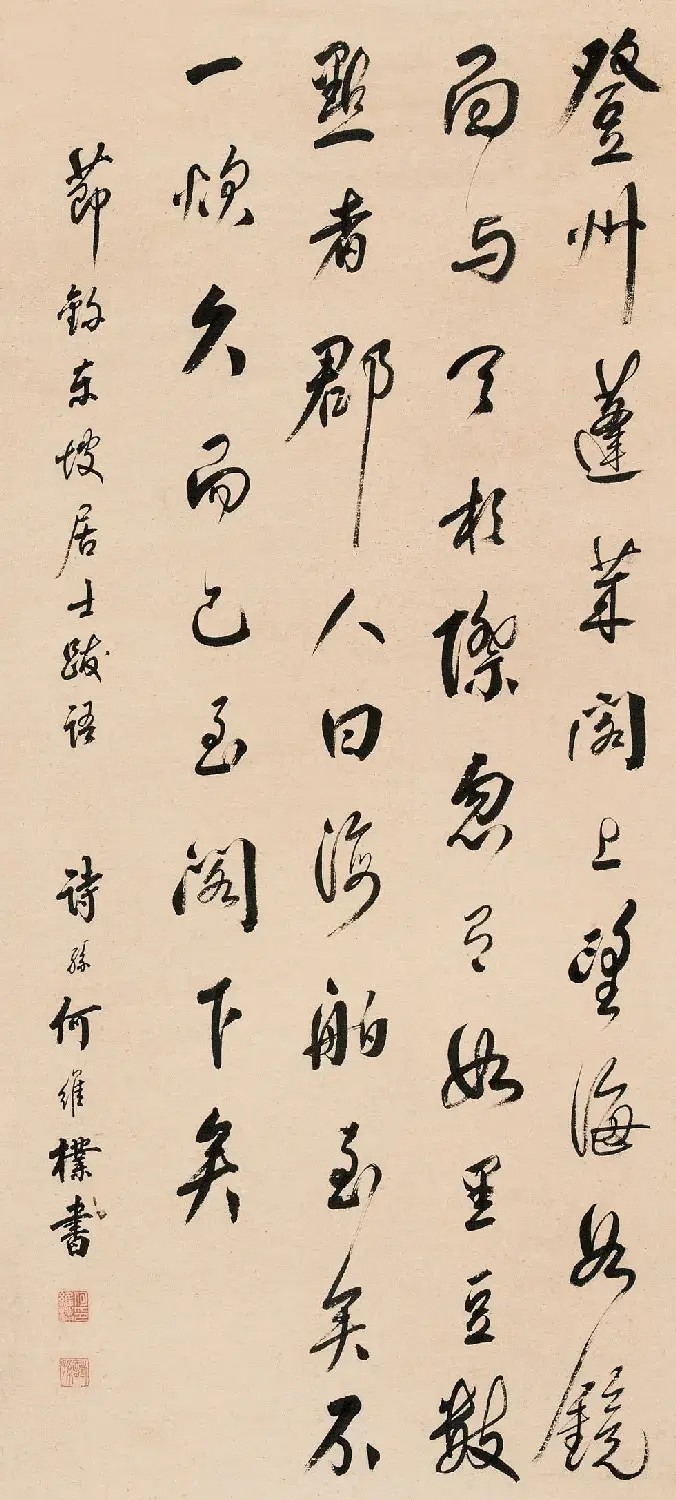 登州蓬莱阁上望海如鏡
面与天相際忽有如黑豆數
點者郡人曰海舶至矣不
一炊久而已至阁下矣
節録东坡居士跋语
詩孫何維樸書